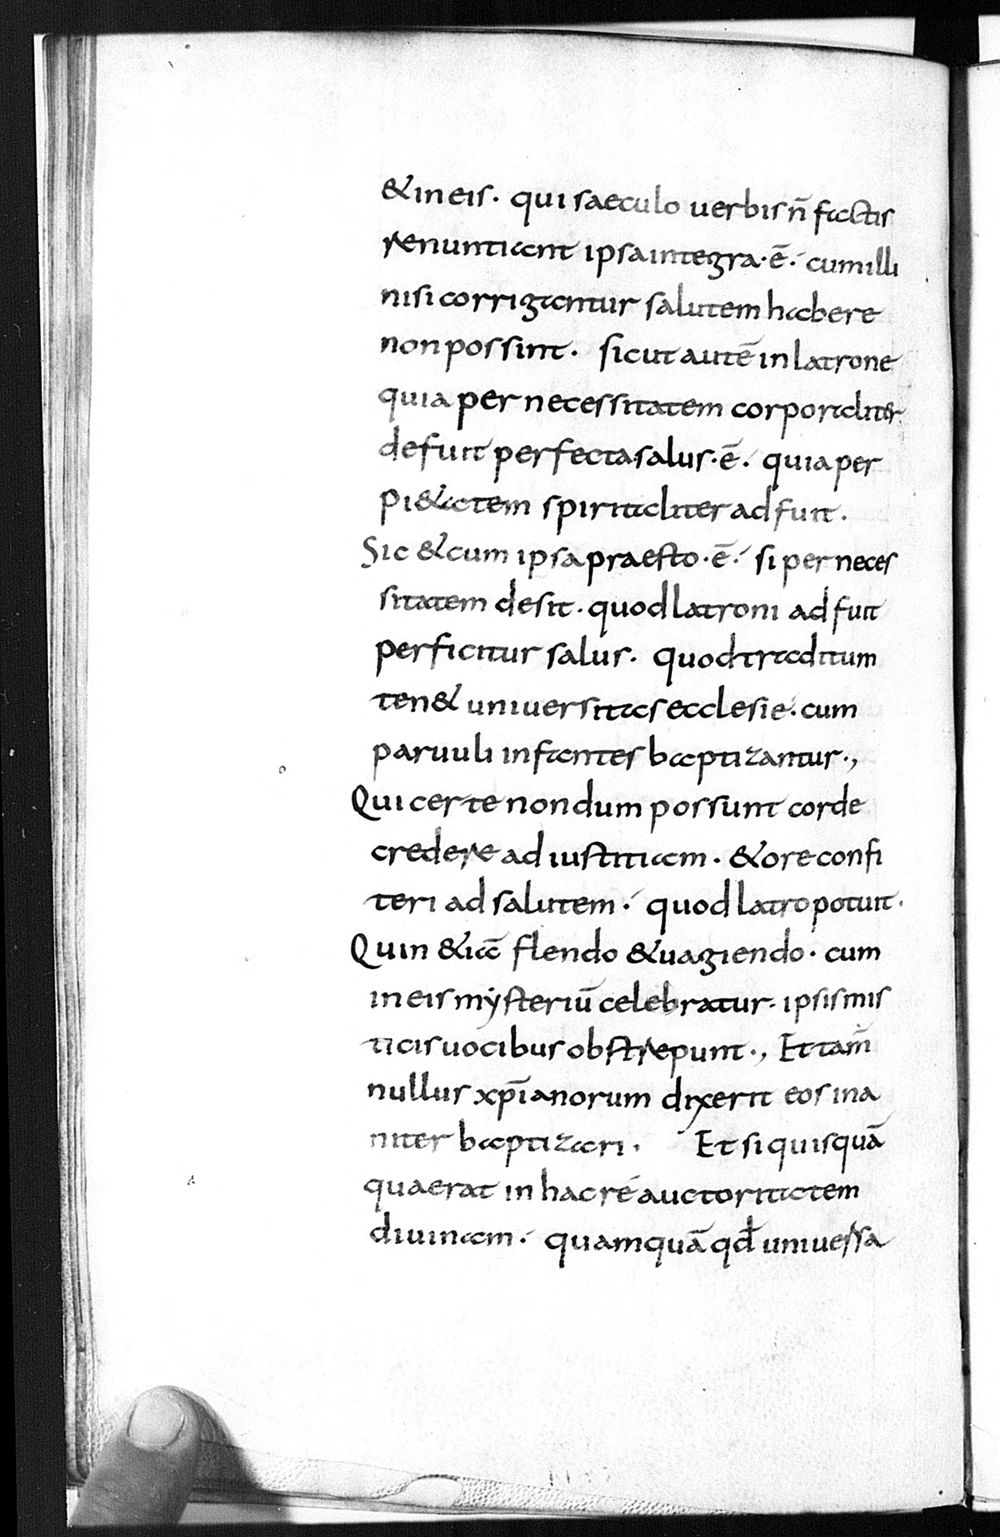 &in eis. qui saeculo uerbis n̄ factis
renuntiant ipsa integra.ē. cum illi
nisi corrigantur salutem habere
non possint. sicut autē in latrone
quia per necessitatem corporaliter
defuit perfecta salus.ē. quia per
pi&atem spiritaliter adfuit.
Sic & cum ipsa praesto.ē. si per neces
sitatem desit. quod latroni adfuit
perficitur salus. quod traditum
ten& uniuersitas ecclesie. cum
paruuli infantes baptizantur.,
Qui certe nondum possunt corde
credere ad iustitiam. & ore confi
teri ad salutem. quod latro potuit.
Quin &iā flendo & uagiendo. cum
in eis mẏsteriū celebratur. ipsis mis
ticis uocibus obstrepunt., Et tam̄
nullus xp̄ianorum dixerit eos ina
niter baptizari. Et si quisquā
quaerat in hac re auctoritatem
diuinam. quamquā qđ uniuessa